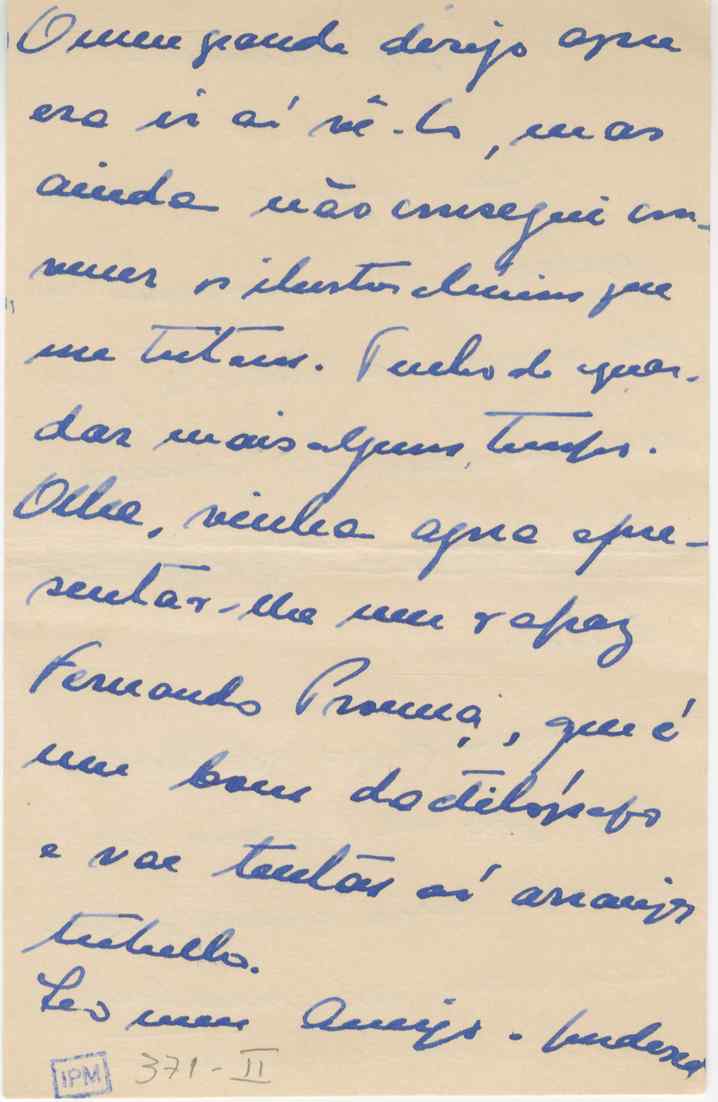 O meu grande desejo agora
era ir aí vê-lo, mas
ainda não consegui con-
vencer os ilustres clínicos que
me tratam. Tenho de aguar-
dar mais algum tempo.
Olhe, venho agora apre-
sentar-lhe um rapaz
Fernando, que é
um bom dactilógrafo
e vae tentar aí arranjar
trabalho.
meu Amigo.
IPM 371-II